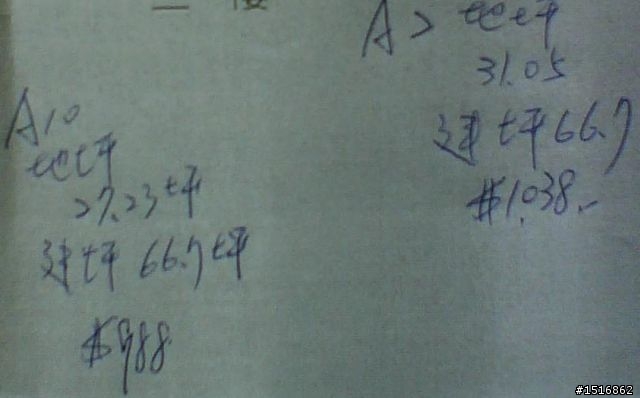 二樓
A10
地坪
27.23坪
建坪 66.7坪
$988
A2 地坪
31.05
建坪 66.7
$1,038.-
#1516862